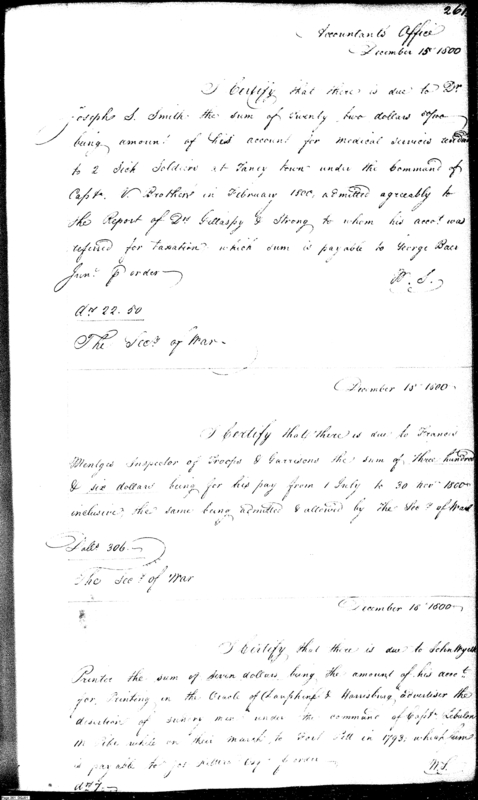 261
Accountants Office
December 15 1800
I Certify that there is due to Dr
Joseph S. Smith the sum of twenty two dollars 50/100
being amount of his account for medical services
to 2 Sick Soldiers at Taney town under the Command of
Capt. V. Brothers in February 1800, admitted agreeably to
the Report of Drs Gillaspy & Strong to whom his accot was
referred for taxation which sum is payable to George Baer
Junr. order
W. S.
Drs 22.50
The Secy of War
December 15 1800
I Certify that there is due to Francis
Mentges Inspector of Troops & Garrisons the sum of three hundred
& six dollars being for his pay from 1 July to 30 Nov 1800
inclusive the same being admitted & allowed by the Secy of War
Dolls 306
The Secy of War
December 16 1800
I Certify that there is due to John Wyeth
Printer the sum of seven dollars being the amount of his accot
for Printing in the Oracle of Dauphin & Harrisburg advertiser the
desertion of sundry men under the command of Capt Zebulon
M Pike while on their march to Fort in 1793, which sum
is payable to Jos order
W.S.
Drs 7.